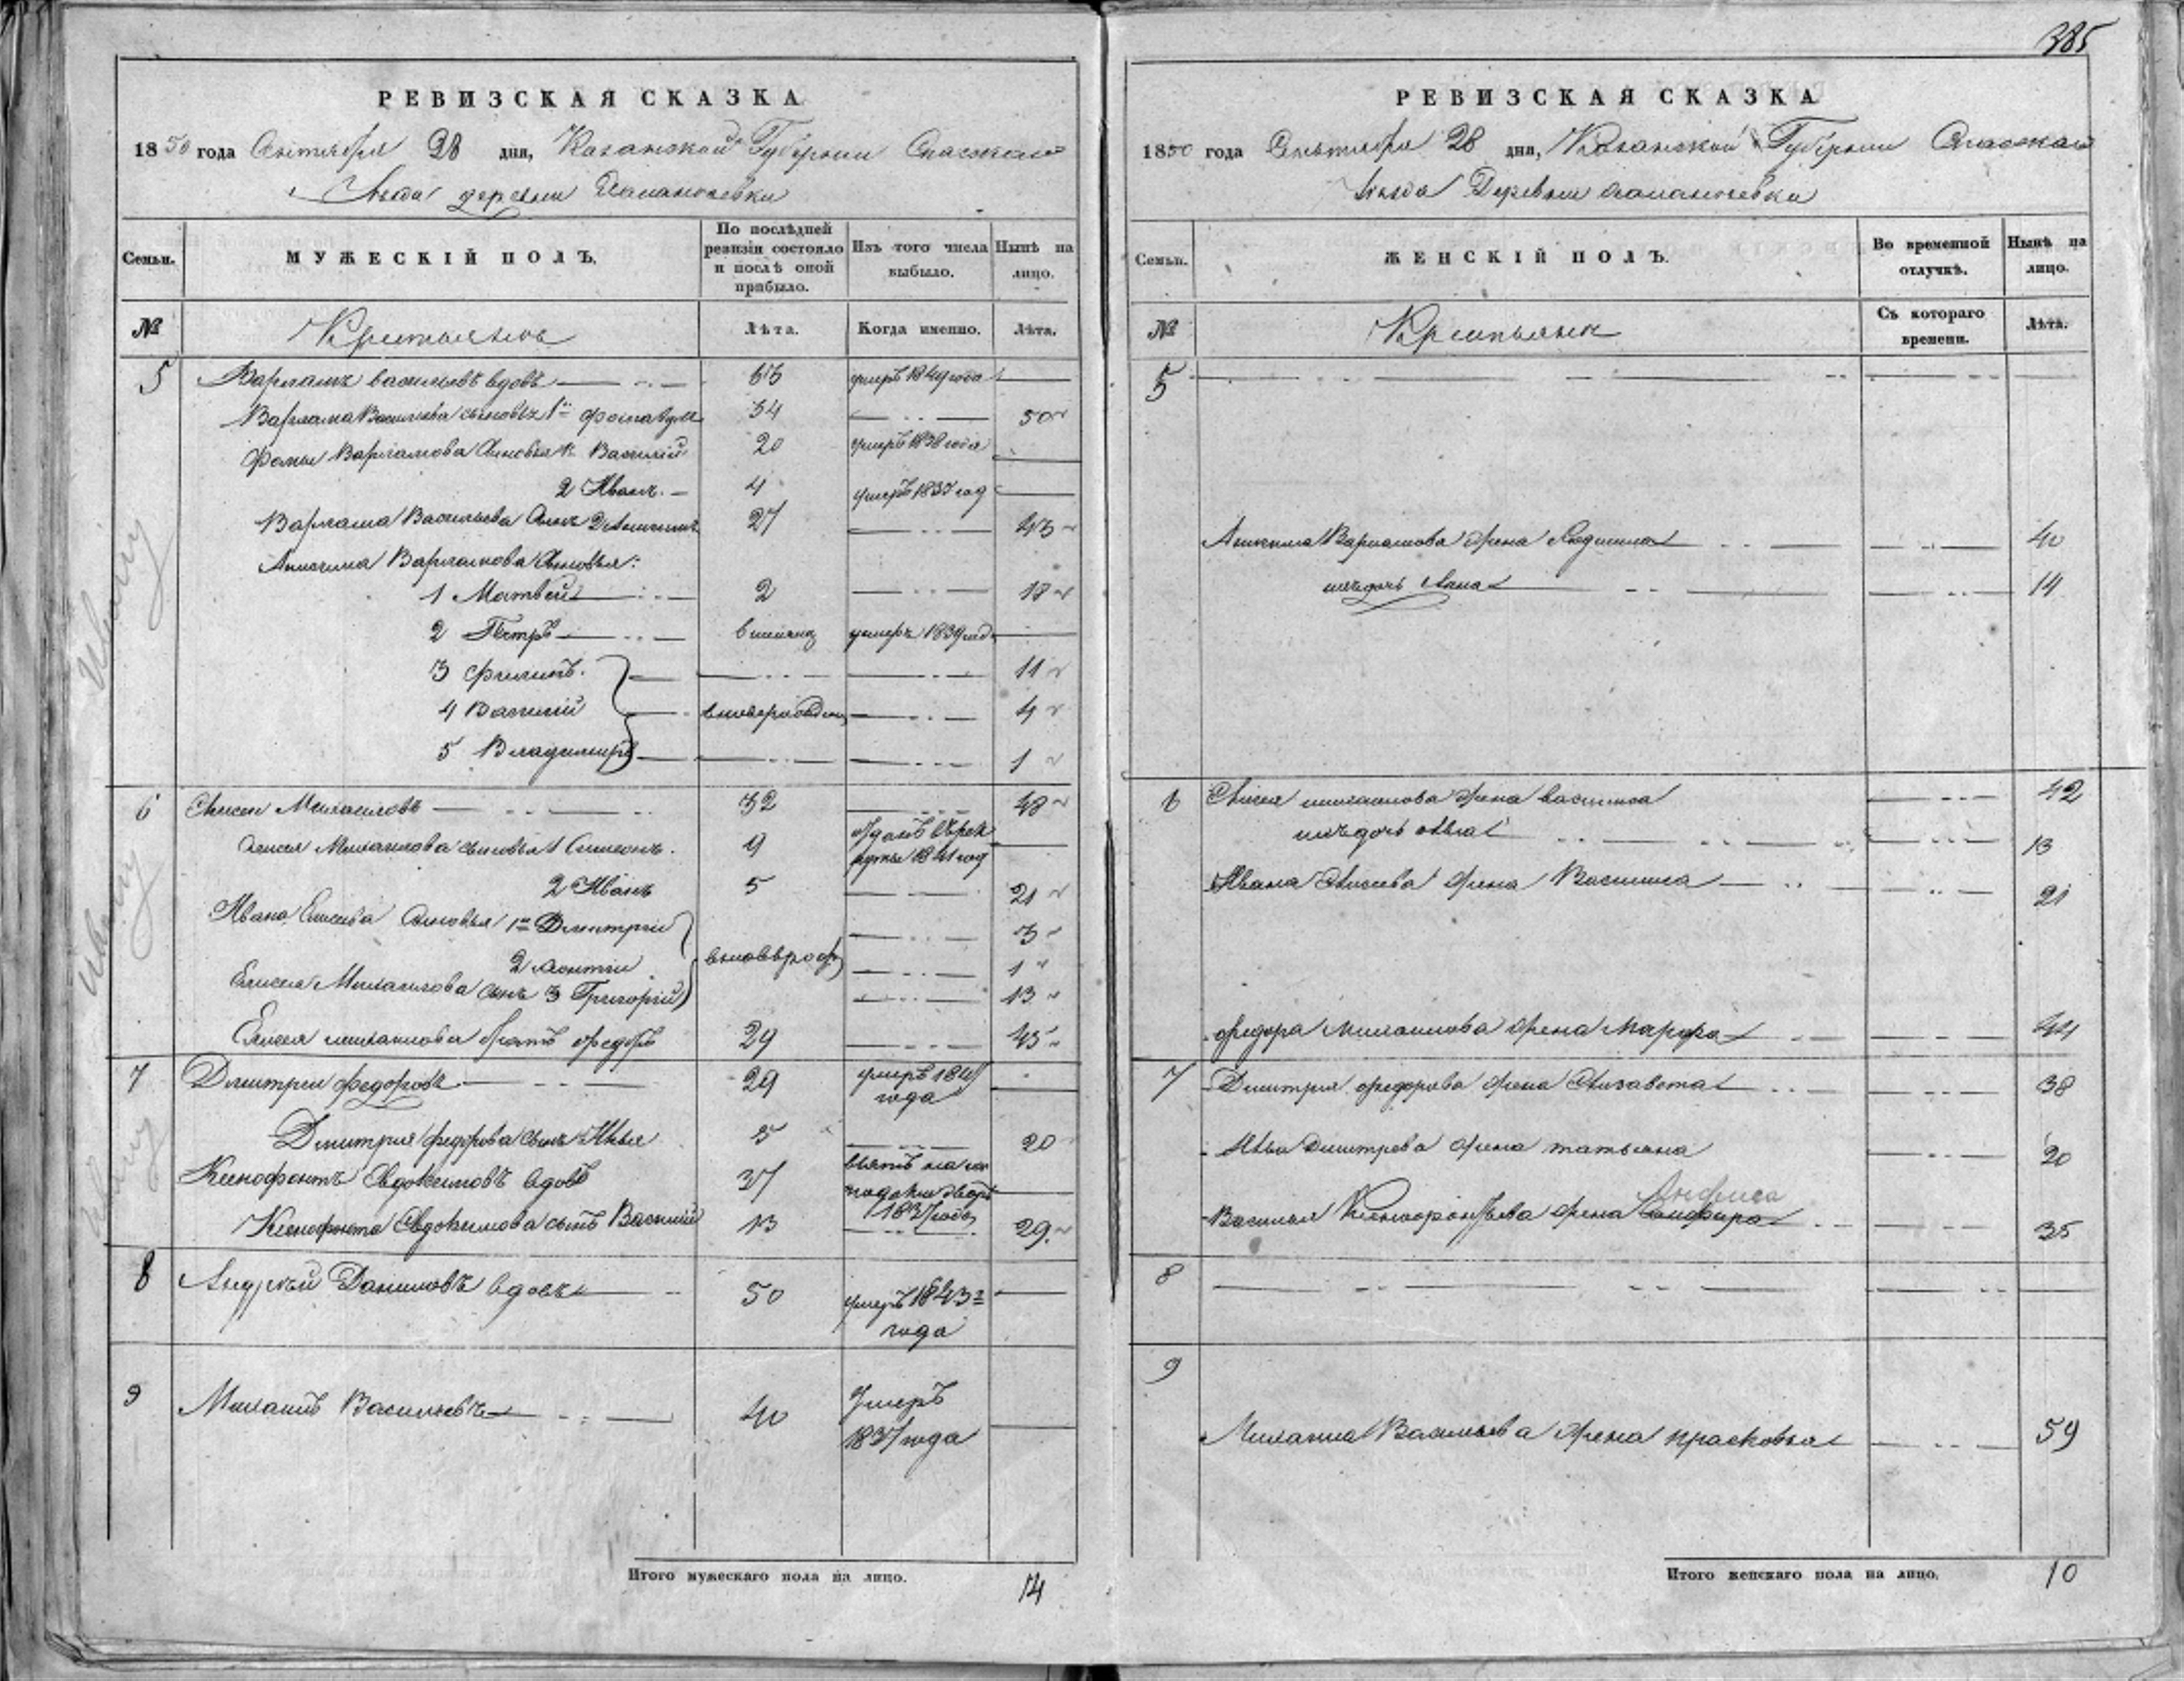 385
РЕВИЗСКАЯ СКАЗКА
1850 года Октября 28 дня, Казанской Губернии Спаскаго
Уезда деревни
Семьи.
МУЖЕСКІЙ ПОЛЪ.
По послѣдней ревизіи состояло и послѣ оной прибыло.
Изъ того числа выбыло.
Нынѣ на лицо.
№
Крестьянъ
Лѣта.
Когда именно.
Лѣта.
5 Варламъ васильевъ вдовъ умеръ 1849 года
Варлама Васильева сыновья 1й фома вдов 34 50
Фомы Варламова Сыновья 1 Василий 20 умеръ 1838 года
2 Иванъ. 4 умеръ 1837 год
Варлама Васильева Сынъ 2 27 43
Варламова Сыновья:
1 Матвей 2 18
2 Петръ умеръ 1839 год
3 Филипъ. 11
4 Василий 4
5 Владимиръ 1
6 Михаиловъ 32 48
Михаилова сыновья 1 Симеонъ. 9 отданъ в рек
руты 1841 год
2 Иванъ 5 21
Ивана Елисева Сыновья 1й Дмитрий 3
2 1
Елисея Михаилова сынъ 3 Григорий 13
Елисея михаилова братъ федоръ 29 45
7 Дмитреи федоровъ 29 умеръ 184
года
Дмитрия федорова сынъ Илья 5 20
Ксенофонтъ Евдокимовъ вдовъ 37 взятъ на
1837 года
Ксенофонта Евдокимова сынъ Василий 13 29.
8 Андрѣй Даниловъ вдовъ 50 умеръ 1843го
года
9 Михаилъ Васильевъ 40 Умеръ
1837 года
Итого мужескаго пола на лицо. 14
РЕВИЗСКАЯ СКАЗКА
1850 года Октября 28 дня, Казанской Губернии Спаскаго
Уезда Деревни
Семьи.
ЖЕНСКІЙ ПОЛЪ.
Во временной отлучкѣ.
Нынѣ на лицо.
№
Крестьянъ
Съ котораго времени.
Лѣта.
5
Варламова жена 40
ихъ дочь Анна 14
6 михаилова жена василиса 42
ихъ дочь 13
Ивана Елисева жена Василиса 21
федора Михаилова жена Марфа 44
7 Дмитрия федорова жена Елизавета 38
Ильи Дмитрева жена татьяна 20
Анфиса
Василья Ксенофонтьева жена 35
8
9
Михаила Васильева жена прасковья 59
Итого женскаго пола на лицо. 10